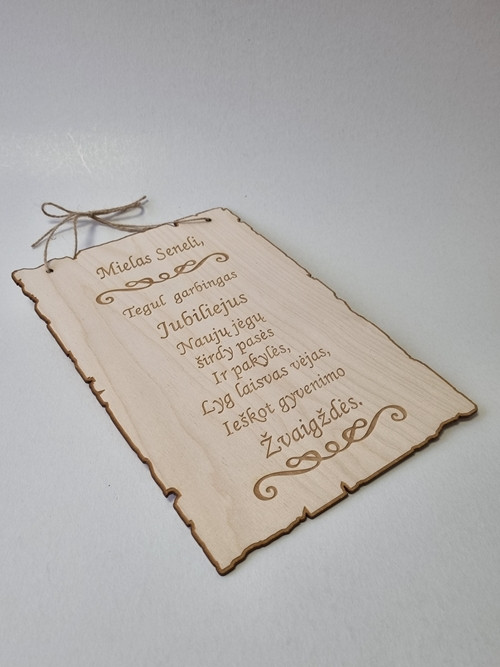 Mielas Seneli,
Tegul garbingas
Jubiliejus
Naujų jėgų
širdy pasės
Ir pakylės,
Lyg laisvas vėjas,
Ieškot gyvenimo
Žvaigždės.